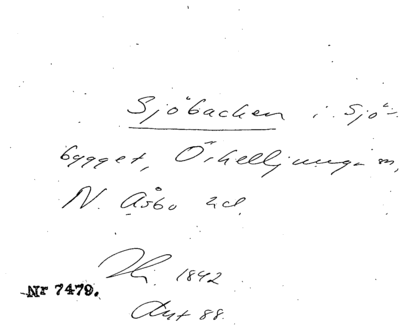 Sjöbacken i Sjö-
bygget, Örkelljunga sn,
N. Åsbo hd.
1842
Nr 7479.
Ant 88.